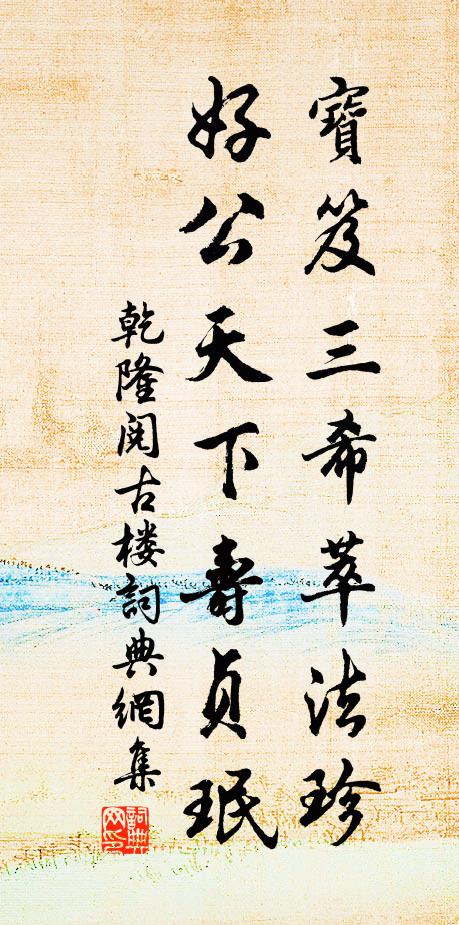 寶笈三希萃法珍
好公天下壽貞珉
乾隆閱古楼詞典網集
詞典網印